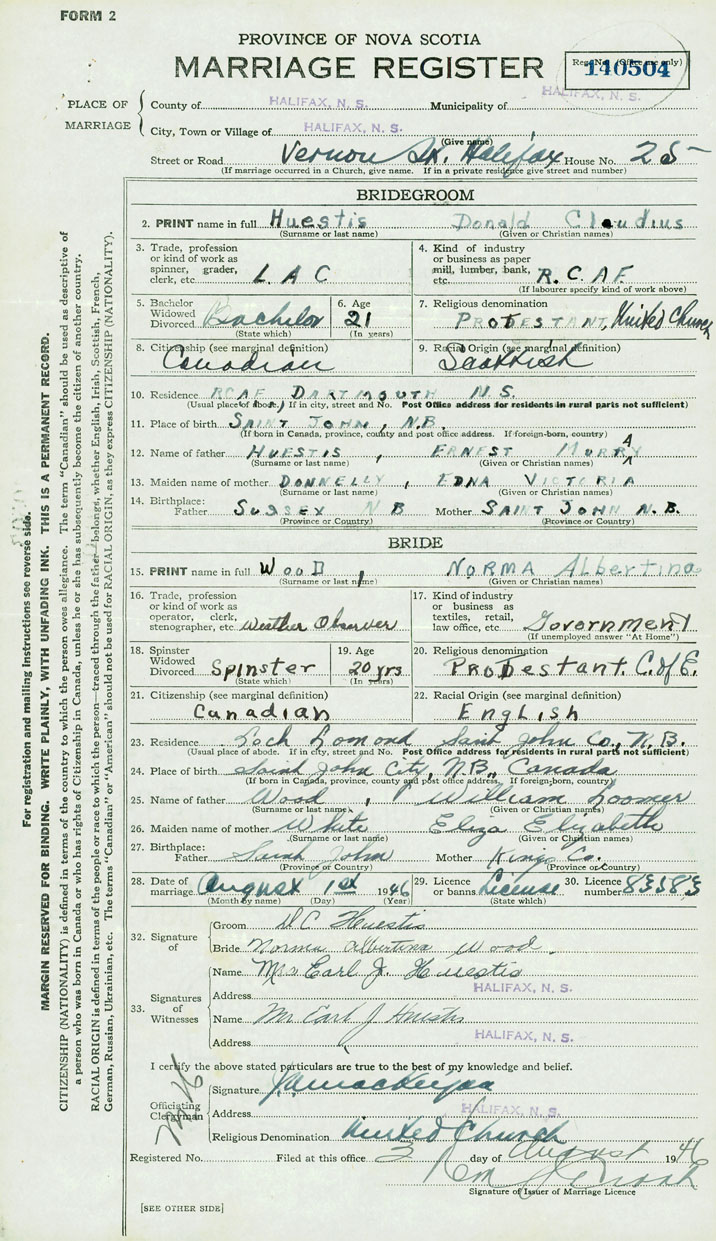 FORM 2
PROVINCE OF NOVA SCOTIA
MARRIAGE REGISTER
Reg. No. (Office use only)
140504
PLACE OF MARRIAGE
County of HALIFAX, N. S. Municipality of HALIFAX, N. S.
City, Town or Village of HALIFAX, N. S.
(Give name)
Street or Road Vernon St. Halifax House No. 25
(If marriage occurred in a Church, give name. If in a private residence give street and number)
BRIDEGROOM
2. PRINT name in full Huestis Donald Claudius
(Surname or last name) (Given or Christian names)
3. Trade, profession or kind of work as spinner, grader, clerk, etc. L A C
4. Kind of industry or business as paper mill, lumber, bank, etc. R.C.A.F.
(If labourer specify kind of work above)
5. Bachelor Widowed Divorced Bachelor (State which)
6. Age 21 (In years)
7. Religious denomination PROTESTANT, United Church
8. Citizenship (see marginal definition) Canadian
9. Racial Origin (see marginal definition) Scottish
10. Residence RCAF DARTMOUTH N.S.
(Usual place of abode. If in city, street and No. Post Office address for residents in rural parts not sufficient)
11. Place of birth SAINT JOHN, N.B.
(If born in Canada, province, county and post office address. If foreign-born, country)
12. Name of father HUESTIS, ERNEST MURRAY
(Surname or last name) (Given or Christian names)
13. Maiden name of mother DONNELLY, EDNA VICTORIA
(Surname or last name) (Given or Christian names)
14. Birthplace: Father SUSSEX N B Mother SAINT JOHN N.B.
(Province or Country) (Province or Country)
BRIDE
15. PRINT name in full WOOD, NORMA Albertina
(Surname or last name) (Given or Christian names)
16. Trade, profession or kind of work as operator, clerk, stenographer, etc. Weather Observer
17. Kind of industry or business as textiles, retail, law office, etc. Government
(If unemployed answer "At Home")
18. Spinster Widowed Divorced Spinster (State which)
19. Age 20 yrs (In years)
20. Religious denomination Protestant. C. of E.
21. Citizenship (see marginal definition) Canadian
22. Racial Origin (see marginal definition) English
23. Residence Loch Lomond Saint John Co., N.B.
(Usual place of abode. If in city, street and No. Post Office address for residents in rural parts not sufficient)
24. Place of birth Saint John City, N.B., Canada
(If born in Canada, province, county and post office address. If foreign-born, country)
25. Name of father Wood, William Loomer
(Surname or last name) (Given or Christian names)
26. Maiden name of mother White Eliza Elizabeth
(Surname or last name) (Given or Christian names)
27. Birthplace: Father Saint John Mother Kings Co.
(Province or Country) (Province or Country)
28. Date of marriage August 1st 1946
(Month by name) (Day) (Year)
29. Licence or banns License (State which)
30. Licence number 83583
32. Signature of
Groom D C Huestis
Bride Norma Albertina Wood.
33. Signatures of Witnesses
Name Mrs Earl J. Huestis
Address HALIFAX, N. S.
Name Mr Earl J Huestis
Address HALIFAX, N. S.
I certify the above stated particulars are true to the best of my knowledge and belief.
Officiating Clergyman
Signature
Address HALIFAX, N. S.
Religious Denomination United Church
Registered No. Filed at this office 3 day of August 1946
Signature of Issuer of Marriage Licence
[SEE OTHER SIDE]
For registration and mailing instructions see reverse side.
MARGIN RESERVED FOR BINDING. WRITE PLAINLY, WITH UNFADING INK. THIS IS A PERMANENT RECORD.
CITIZENSHIP (NATIONALITY) is defined in terms of the country to which the person owes allegiance. The term "Canadian" should be used as descriptive of
a person who was born in Canada or who has rights of Citizenship in Canada, unless he or she has subsequently become the citizen of another country.
RACIAL ORIGIN is defined in terms of the people or race to which the person—traced through the father—belongs, whether English, Irish, Scottish, French,
German, Russian, Ukrainian, etc. The terms "Canadian" or "American" should not be used for RACIAL ORIGIN, as they express CITIZENSHIP (NATIONALITY).